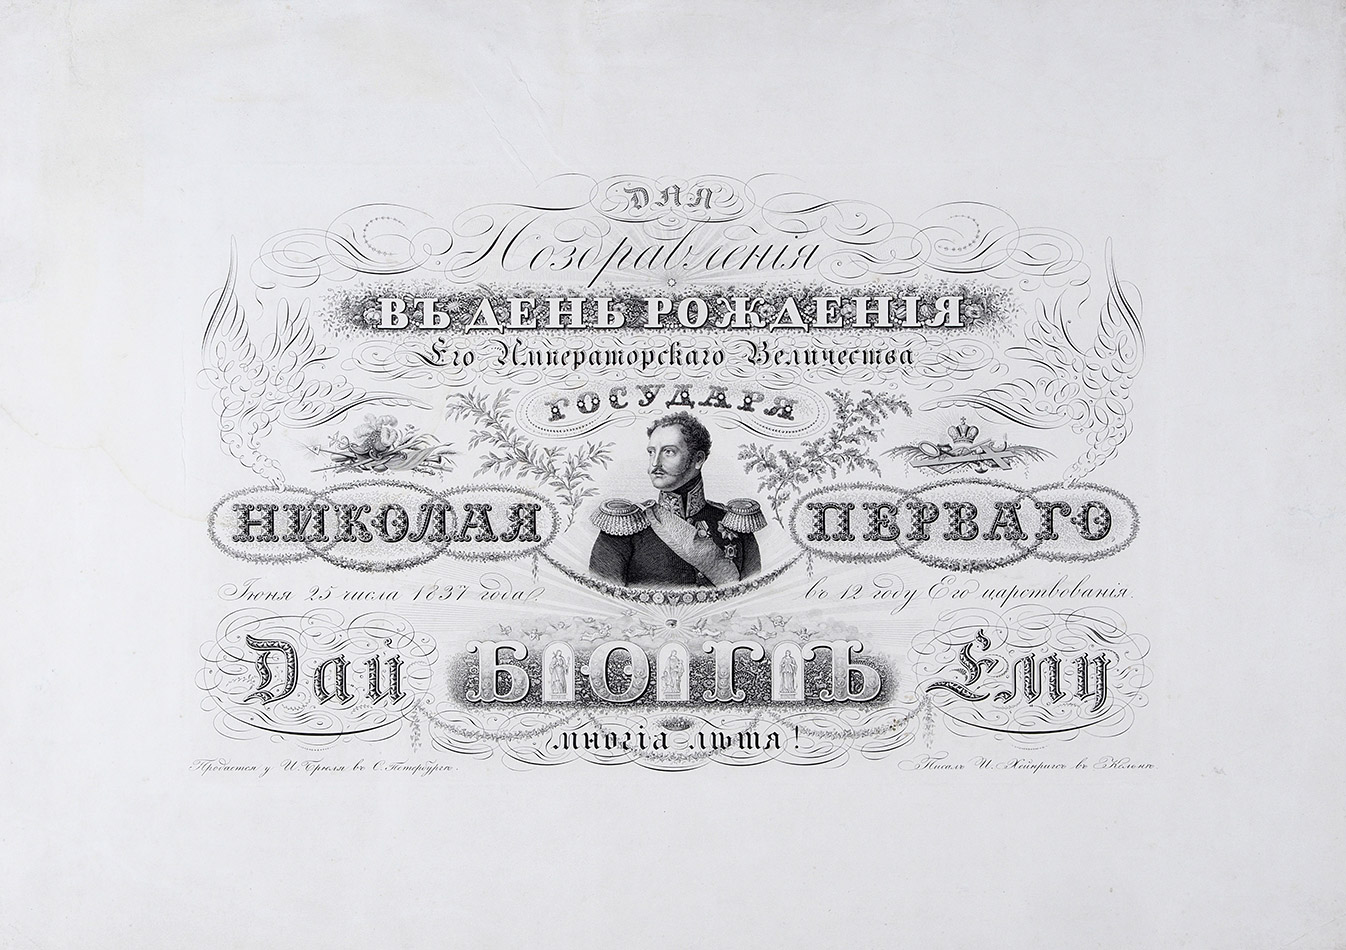 ДЛЯ
Поздравленія
ВЪ ДЕНЬ РОЖДЕНІЯ
Его Императорскаго Величества
ГОСУДАРЯ
НИКОЛАЯ ПЕРВАГО
Іюня 25 числа 1837 года, въ 12 году Его царствованія.
Дай БОГЪ Ему
многія лѣта!
Продается у И. Брюля въ С. Петербургѣ. Писалъ И. Хейнригсъ въ Кёлонѣ.